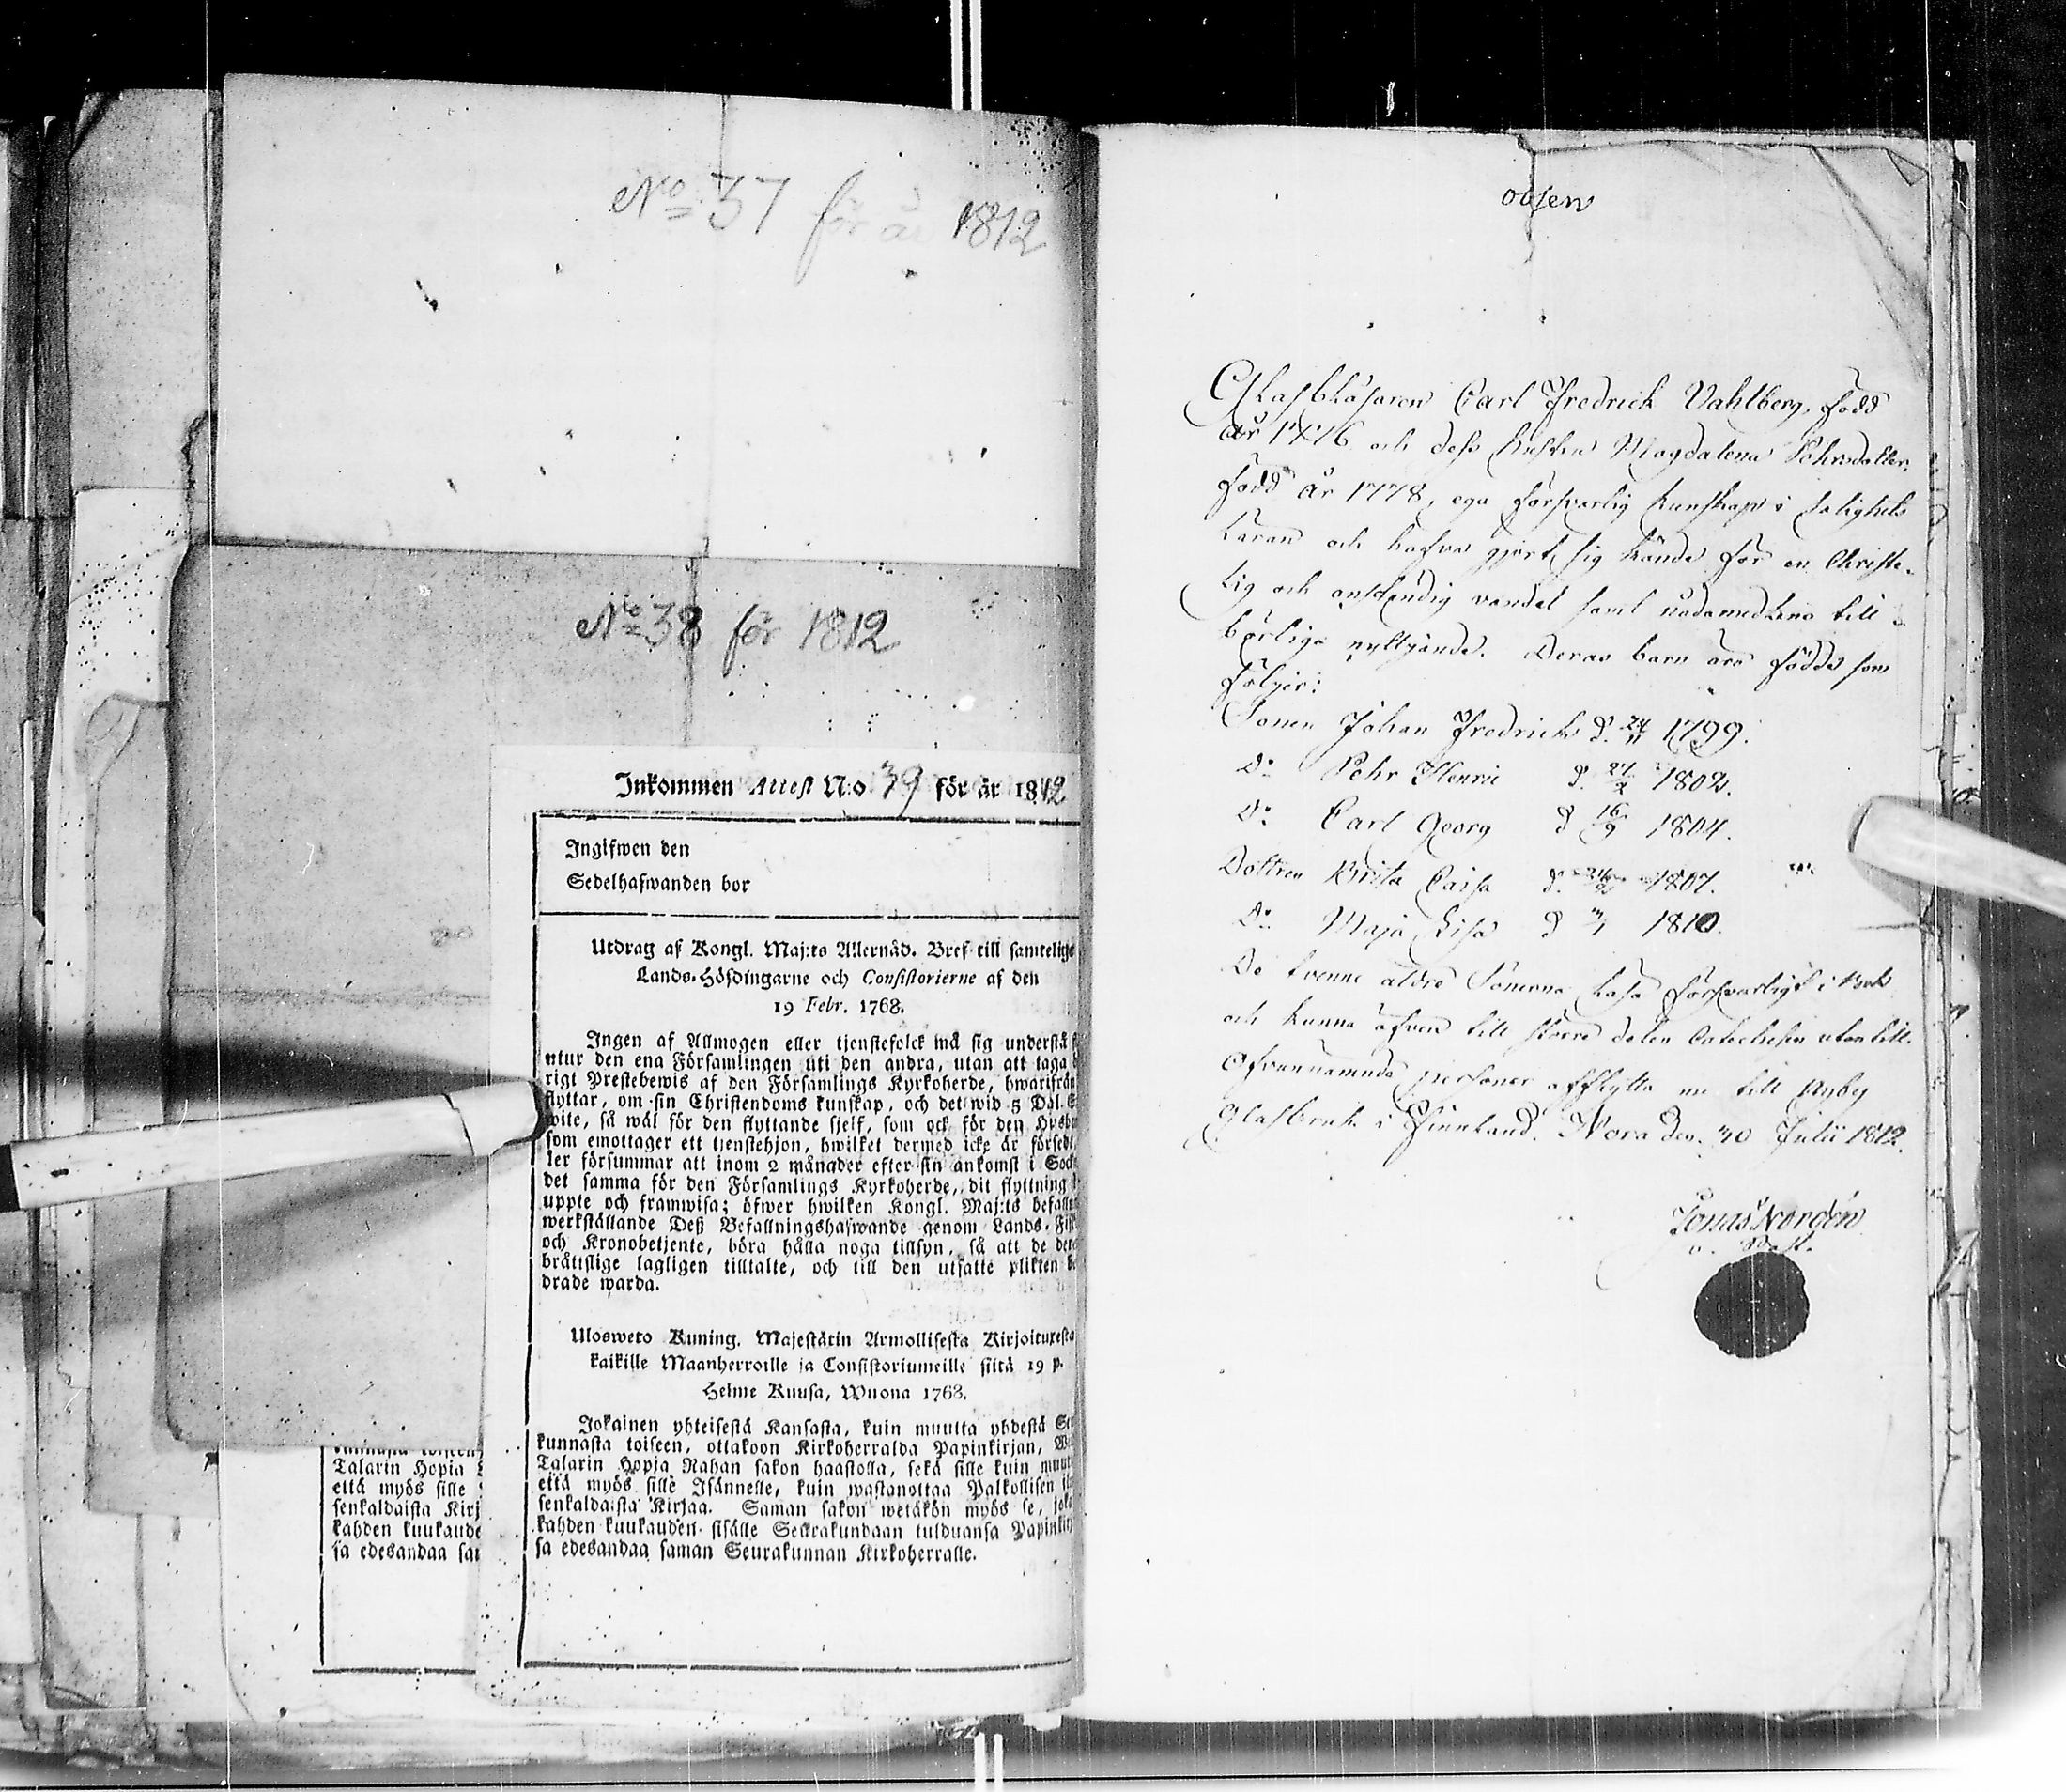 No 37 för år 1812
No 38 för 1812
Inkommen Attest N:o 39 för år 1812
Ingifwen den
Sedelhafwanden bor
Utdrag af Kongl. Maj:ts Allernåd. Bref till samtelige
Lands-Höfdingarne och Consistorierne af den
19 Febr. 1768.
Ingen af Allmogen eller tjenstefolck må sig understå
utur den ena Församlingen uti den andra, utan att taga
rigt Prestebewis af den Församlings Kyrkoherde, hwarifrån
flyttar, om sin Christendoms kunskap, och det wid 5 Dal. S
wite, så wäl för den flyttande sjelf, som ock för den Husbo
som emottager ett tjenstehjon, hwilket dermed icke är försedt
ler försummar att inom 2 månader efter sin ankomst i Sock
det samma för den Församlings Kyrkoherde, dit flyttning
uppte och framwisa; öfwer hwilken Kongl. Maj:ts befalln
werkställande Deß Befallningshafwande genom Lands-Fisk
och Kronobetjente, böra hålla noga tillsyn, så att de der
bråtislige lagligen tilltalte, och till den utsatte plikten
drade warda.
Ulosweto Kuning. Majestätin Armollisesta Kirjoituxesta
kaikille Maanherroille ja Consistoriumeille siitä 19 p.
Helme Kuusa, Wuona 1768.
Jokainen yhteisestä Kansasta, kuin muutta yhdestä Seu
kunnasta toiseen, ottakoon Kirkoherralda Papinkirjan, W
Talarin Hopja Rahan sakon haastolla, sekä sille kuin muut
että myös sille Isännelle, kuin wastanottaa Palkollisen il
senkaldaista Kirjaa. Saman sakon wetäkön myös se, joka
kahden kuukauden sisälle Seurakundaan tulduansa Papinkir
sa edesandaa saman Seurakunnan Kirkoherralle.
Talarin Hopia
että myös sille
senkaldaista Kirj
kahden kuukaude
sa edesandaa sa
Glasblåsaren Carl Fredrick Vahlberg, född
år 1776 och dess hustru Magdalena Pehrsdotter,
född år 1778, ega försvarlig kunskap i salighets
läran och hafva gjort sig kände för en Christe-
lig och anständig vandel samt nådemedlens till-
börliga nyttjande. Deras barn äro födde som
följer:
Sonen Johan Fredrick d. 24/11 1799.
Do Pehr Henric d. 27/2 1802.
Do Carl Georg d 16/9 1804.
Dottren Brita Caisa d. 1807.
Do Maja Lisa d 1810.
De tvenne äldre Sönerna läsa försvarligt i Bok
och kunna äfven till större delen Catechesen utantill.
Ofvannämnda personer afflytta nu till Nyby
Glasbruk i Finnland. Nora den 30 Julii 1812.
Jonas Nordén
v. Past.